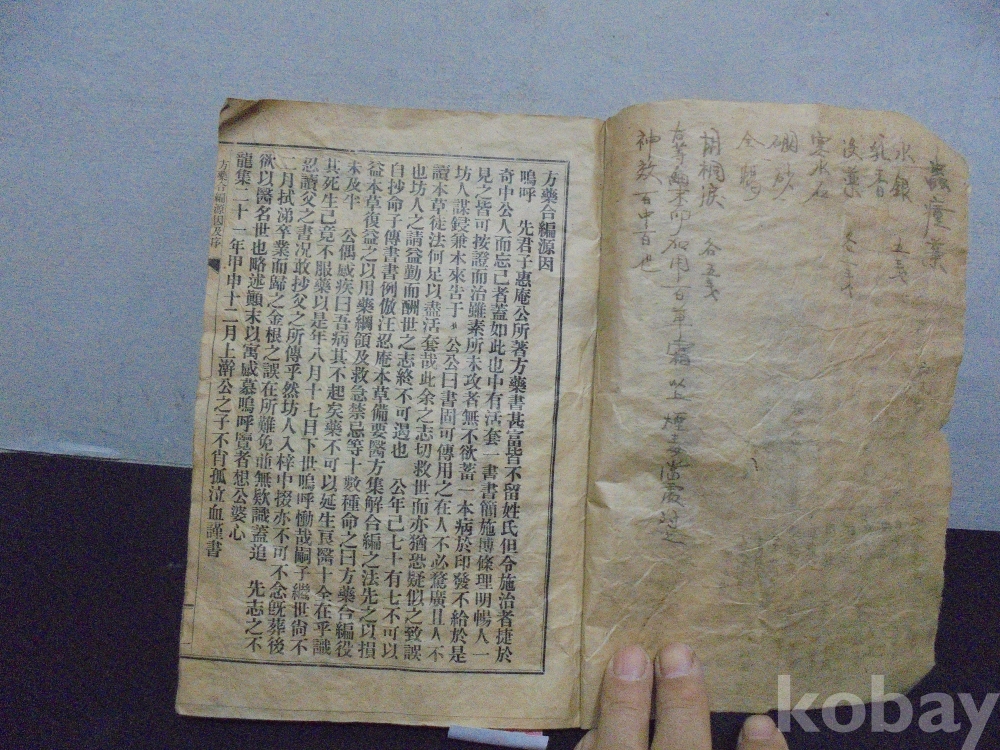 蟲瘡藥
水銀 五戔
乳香
沒藥 各三戔
寒水石
硼砂
全蝎
胡桐淚 各五戔
神效 百中百也
方藥合編源因
嗚呼 先君子惠庵公所著方藥書甚言皆不留姓氏但令施治者捷於
奇中公人而忘己者蓋如此也中有活套一書書簡施博條理明暢人一
見之皆可按證而治雖素所未攻者無不欲蓄一本病於印發不給於是
坊人謀鋟兼本來告于公公曰書固可傳用之在人不必騖廣且人不
讀本草徒法何足以盡活套哉此余之志切救世而亦猶恐疑似之致誤
也坊人之請益勤而酬世之志終不可遏也 公年已七十有七不可以
自抄命子傳書書例倣汪忍庵本草備要醫方集解合編之法先之以損
益本草復益之以用藥綱領及救急禁忌等十數種命之曰方藥合編役
未及半 公偶感疾曰吾病其不起矣藥不可以延生亘醫十全在乎識
其死生已竟不服藥以是年八月十七日下世嗚呼慟哉嗣子繼世尙不
忍讀父之書况敢抄父之所傳乎然坊人入梓中掇亦不可不念旣葬後
二月拭涕卒業而歸之金根之誤在所難免並無欵識蓋追 先志之不
欲以醫名世也略述顚末以寓感慕嗚呼覽者想公婆心
龍集二十一年甲申十二月上澣公之子不肖孤泣血謹書
方藥合編源因及序
一
kobay